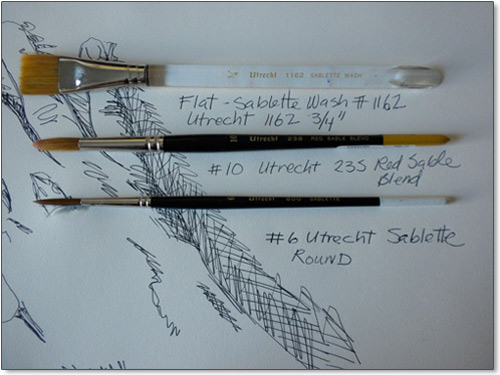 ¾ Utrecht 1162 SABLETTE WASH
Flat - Sablette Wash # 1162
Utrecht 1162 3/4"
10 Utrecht 235 RED SABLE BLEND
#10 Utrecht 235 Red Sable
Blend
6 Utrecht SABLETTE
#6 Utrecht Sablette
Round